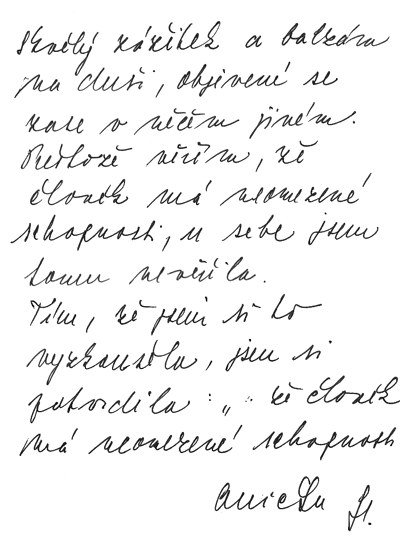 Skvělý zážitek a balzám
na duši, objevené se
zase v něčem jiném.
věřím, že
člověk má neomezené
schopnosti, u sebe jsem
tomu nevěřila.
Tím, že jsem si to
vyzkoušela, jsem si
potvrdila : „ že člověk
má neomezené schopnosti